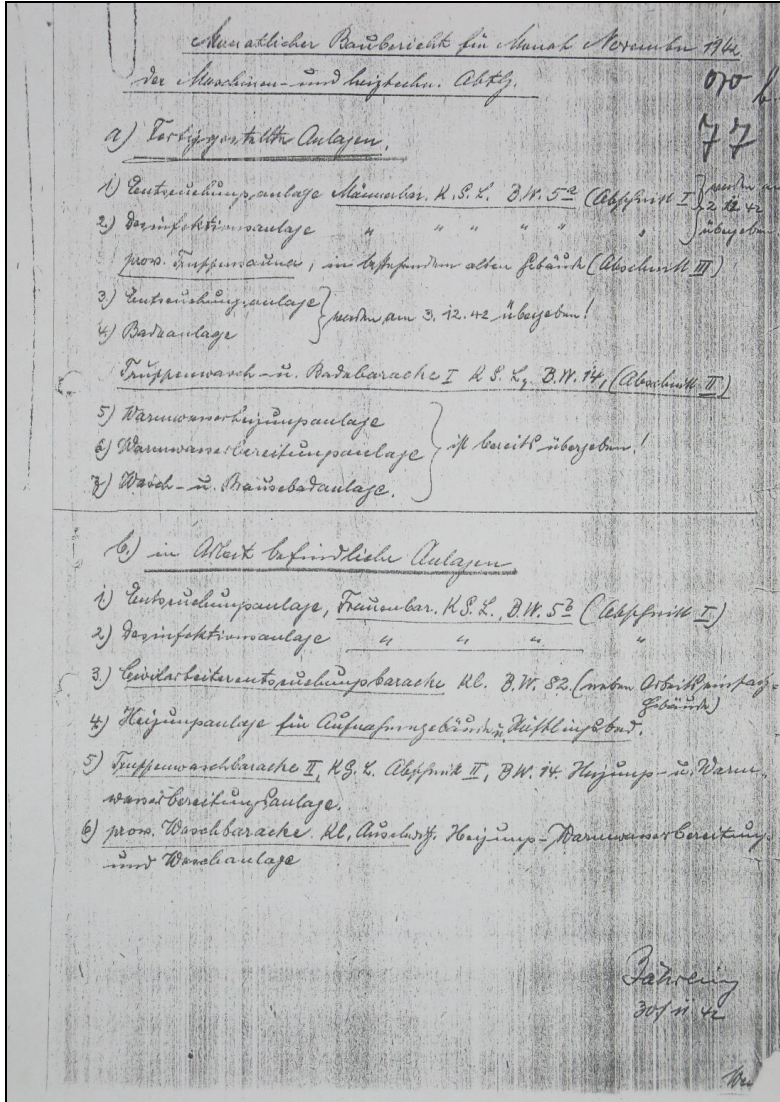 Monatlicher Baubericht für Monat November 1942
der Maschinen- und heiztechn. Abtlg.
070
77
a) Fertiggestellte Anlagen.
1) Entseuchungsanlage Männerbar. K.G.L. B.W. 5a (Abschnitt I } werden am
2.) Desinfektionsanlage " " " " " " } 2.12.42 übergeben
prov. Truppensauna, in bestehendem alten Gebäude (Abschnitt III)
3.) Entseuchungsanlage
4.) Badeanlage } werden am 3.12.42 übergeben!
Truppenwasch- u. Badebaracke I K.G.L., B.W. 14, (Abschnitt II)
5) Warmwasserheizungsanlage
6) Warmwasserbereitungsanlage } ist bereits übergeben!
7) Wasch- u. Brausebadanlage.
b.) in Arbeit befindliche Anlagen
1) Entseuchungsanlage, Frauenbar. K.G.L., B.W. 5b (Abschnitt I)
2) Desinfektionsanlage " " " "
3.) Civilarbeiterentseuchungsbaracke Kl. B.W. 82 (neben Arbeitseinsatz-
Gebäude)
4.) Heizungsanlage für Aufnahmegebäude u. Häftlingsbad.
5) Truppenwaschbaracke II, KG.L. Abschnitt II, BW. 14. Heizungs- u. Warm-
wasserbereitungsanlage.
6) prov. Waschbaracke Kl. Auschwitz. Heizungs- Warmwasserbereitung
und Waschanlage
Jährling
30/11 42